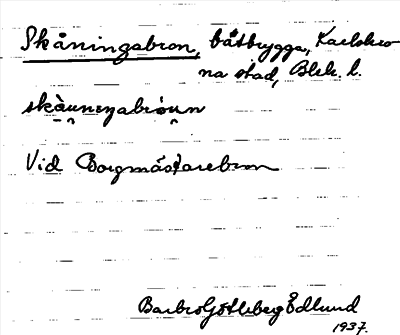 Skåningabron, båtbrygga, Karlskro
na stad, Blek. l.
skåuningabroun
Vid Borgmästarebron
Barbro Götleberg Edlund
1937.